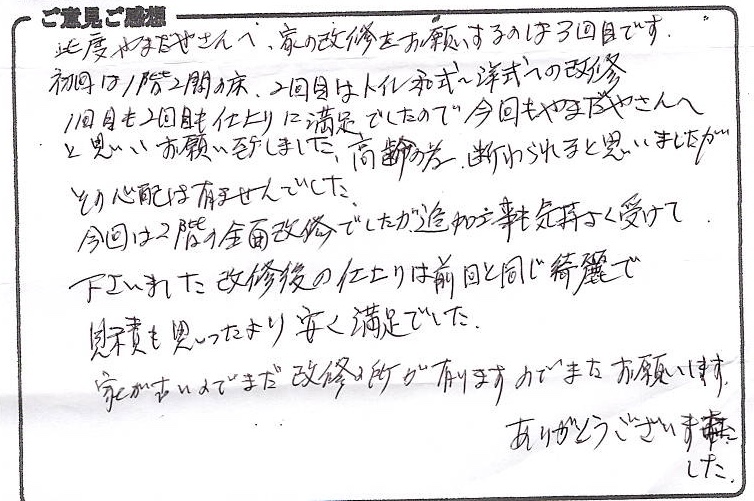 ご意見ご感想
此度やまだやさんへ、家の改修をお願いするのは3回目です。
初回は1階2間の床、2回目はトイレ和式～洋式への改修
1回目も2回目も仕上りに満足でしたので今回もやまだやさんへ
と思いお願い致しました、高齢の為、断わられると思いましたが
その心配は有ませんでした。
今回は2階の全面改修でしたが追加工事も気持よく受けて
下さいました 改修後の仕上りは前回と同じ綺麗で
見積も思ったより安く満足でした。
家が古いのでまだ改修の所が有りますのでまたお願いします。
ありがとうございま
した。